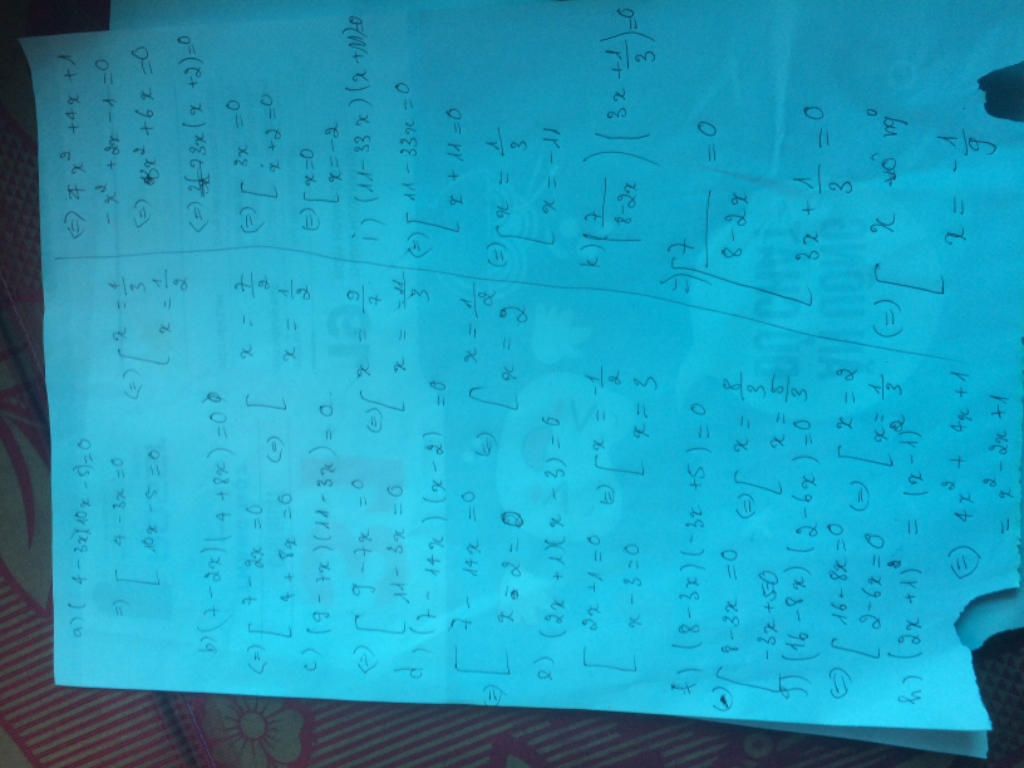 a) (4-3x)(10x-5)=0
=) [ 4-3x=0
10x-5=0
(=) [ x = 1/3
x = 1/2
b) (7-2x)(4+8x)=0
(=) [ 7-2x=0
4+8x=0
(=) [ x = 7/2
x = 1/2
c) (9-7x)(11-3x)=0
(=) [ 9-7x=0
11-3x=0
(=) [ x = 9/7
x = 11/3
d) (7-14x)(x-2)=0
(=) [ 7-14x=0
x-2=0
(=) [ x = 1/2
x = 2
e) (2x+1)(x-3)=0
[ 2x+1=0
x-3=0
(=) [ x = 1/2
x = 3
f) (8-3x)(-3x+5)=0
(=) [ 8-3x=0
-3x+5=0
(=) [ x = 8/3
x = 8/3
g) (16-8x)(2-6x)=0
(=) [ 16-8x=0
2-6x=0
(=) [ x = 2
x = 1/3
h) (2x+1)² = (x-1)²
(=) 4x²+4x+1
= x²-2x+1
(=) 4x²+4x+1
-x²+2x-1=0
(=) 3x²+6x=0
(=) 3x(x+2)=0
(=) [ 3x=0
x+2=0
(=) [ x=0
x=-2
i) (11-33x)(x+11)=0
(=) [ 11-33x=0
x+11=0
(=) [ x = 1/3
x = -11
k) (7/8-2x)(3x+1/3)=0
=) [ 7/8-2x = 0
3x+1/3 = 0
(=) [ x vô ng°
x = -1/9